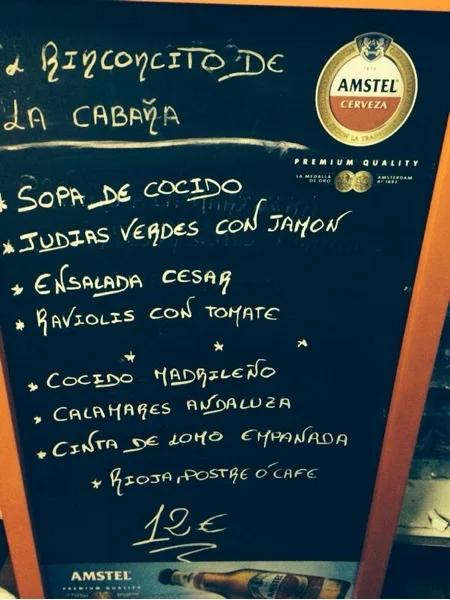 RINCONCITO DE
LA CABAÑA
AMSTEL
CERVEZA
PREMIUM QUALITY
LA MEDALLA DE ORO
AMSTERDAM Aº 1883
* SOPA DE COCIDO
* JUDIAS VERDES CON JAMON
* ENSALADA CESAR
* RAVIOLIS CON TOMATE
* * *
* COCIDO MADRILEÑO
* CALAMARES ANDALUZA
* CINTA DE LOMO EMPANADA
* RIOJA, POSTRE Ó CAFE
12€
AMSTEL
PREMIUM QUALITY